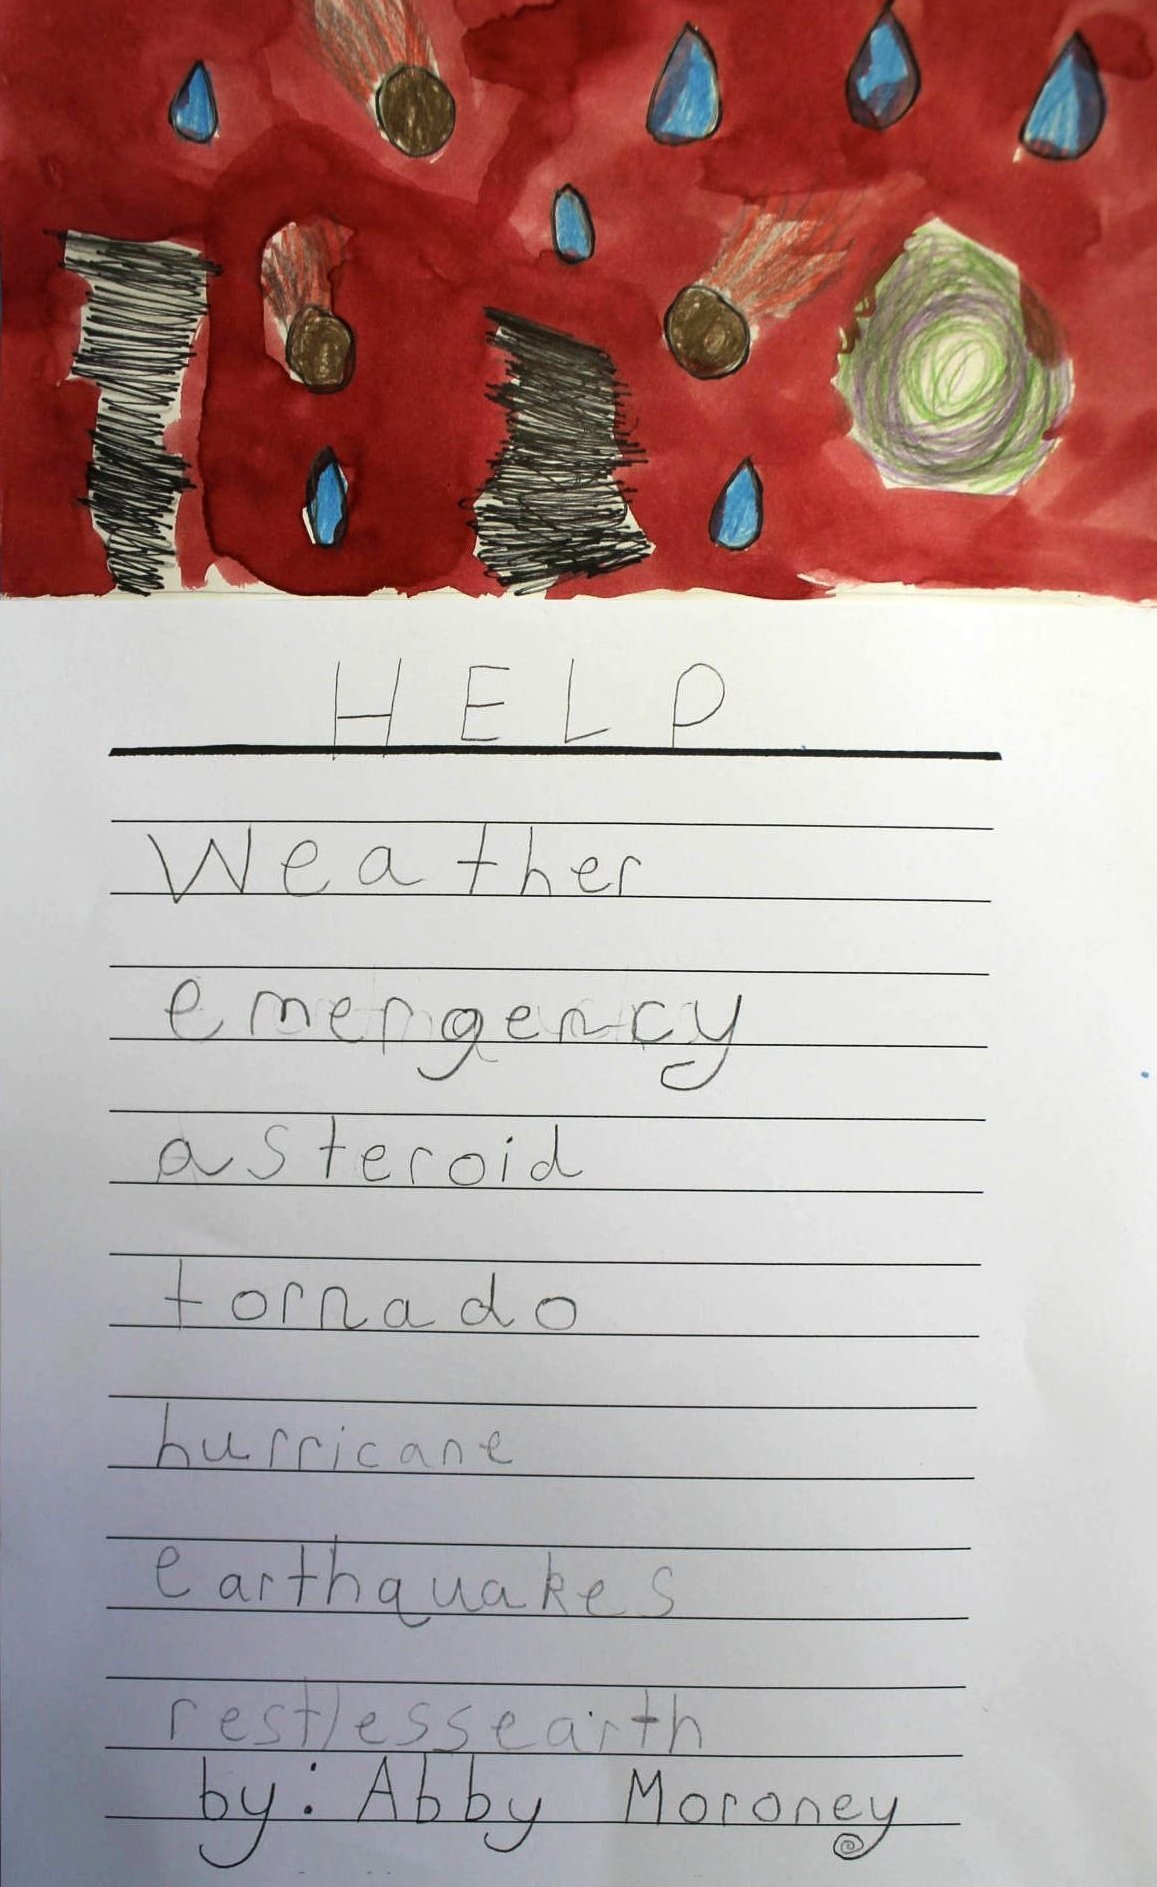 HELP
Weather
emergency
asteroid
tornado
hurricane
earthquakes
restlessearth
by: Abby Moroney